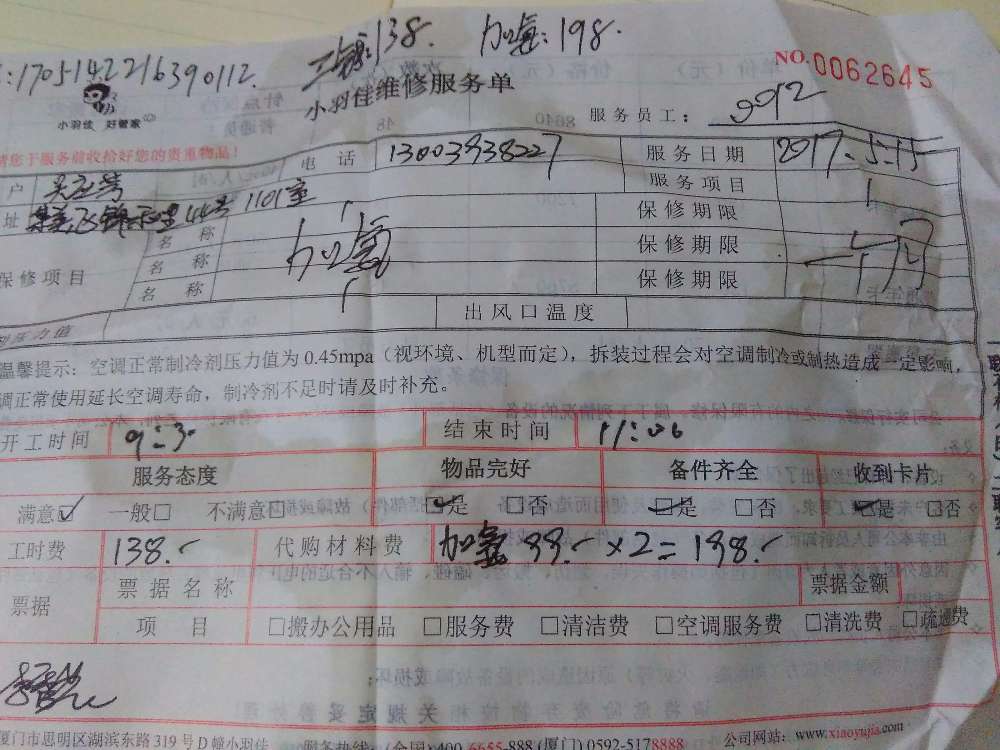 :1705142216390112. 138. 加氟:198.
NO.0062645
小羽佳 好管家
小羽佳维修服务单
服务员工: 992
请您于服务前收拾好您的贵重物品!
户 电话 13003938227 服务日期 2017-5-15
服务项目
址 44号1101室
保修项目
名称 保修期限
名称 加氟 保修期限 一个月
名称 保修期限
压力值 出风口温度
温馨提示:空调正常制冷剂压力值为0.45mpa(视环境、机型而定),拆装过程会对空调制冷或制热造成一定影响,
调正常使用延长空调寿命,制冷剂不足时请及时补充。
开工时间 9:30 结束时间 11:06
服务态度 物品完好 备件齐全 收到卡片
满意☑ 一般□ 不满意□ ☑是 □否 ☑是 □否 ☑是 □否
工时费 138.- 代购材料费 加氟 99.- ×2=198.-
票据 票据名称 票据金额
项目 □搬办公用品 □服务费 □清洁费 □空调服务费 □清洗费 □疏通费
厦门市思明区湖滨东路319号D幢小羽佳 服务热线:(全国)400-6655-888(厦门)0592-5178888 公司网站:www.xiaoyujia.com